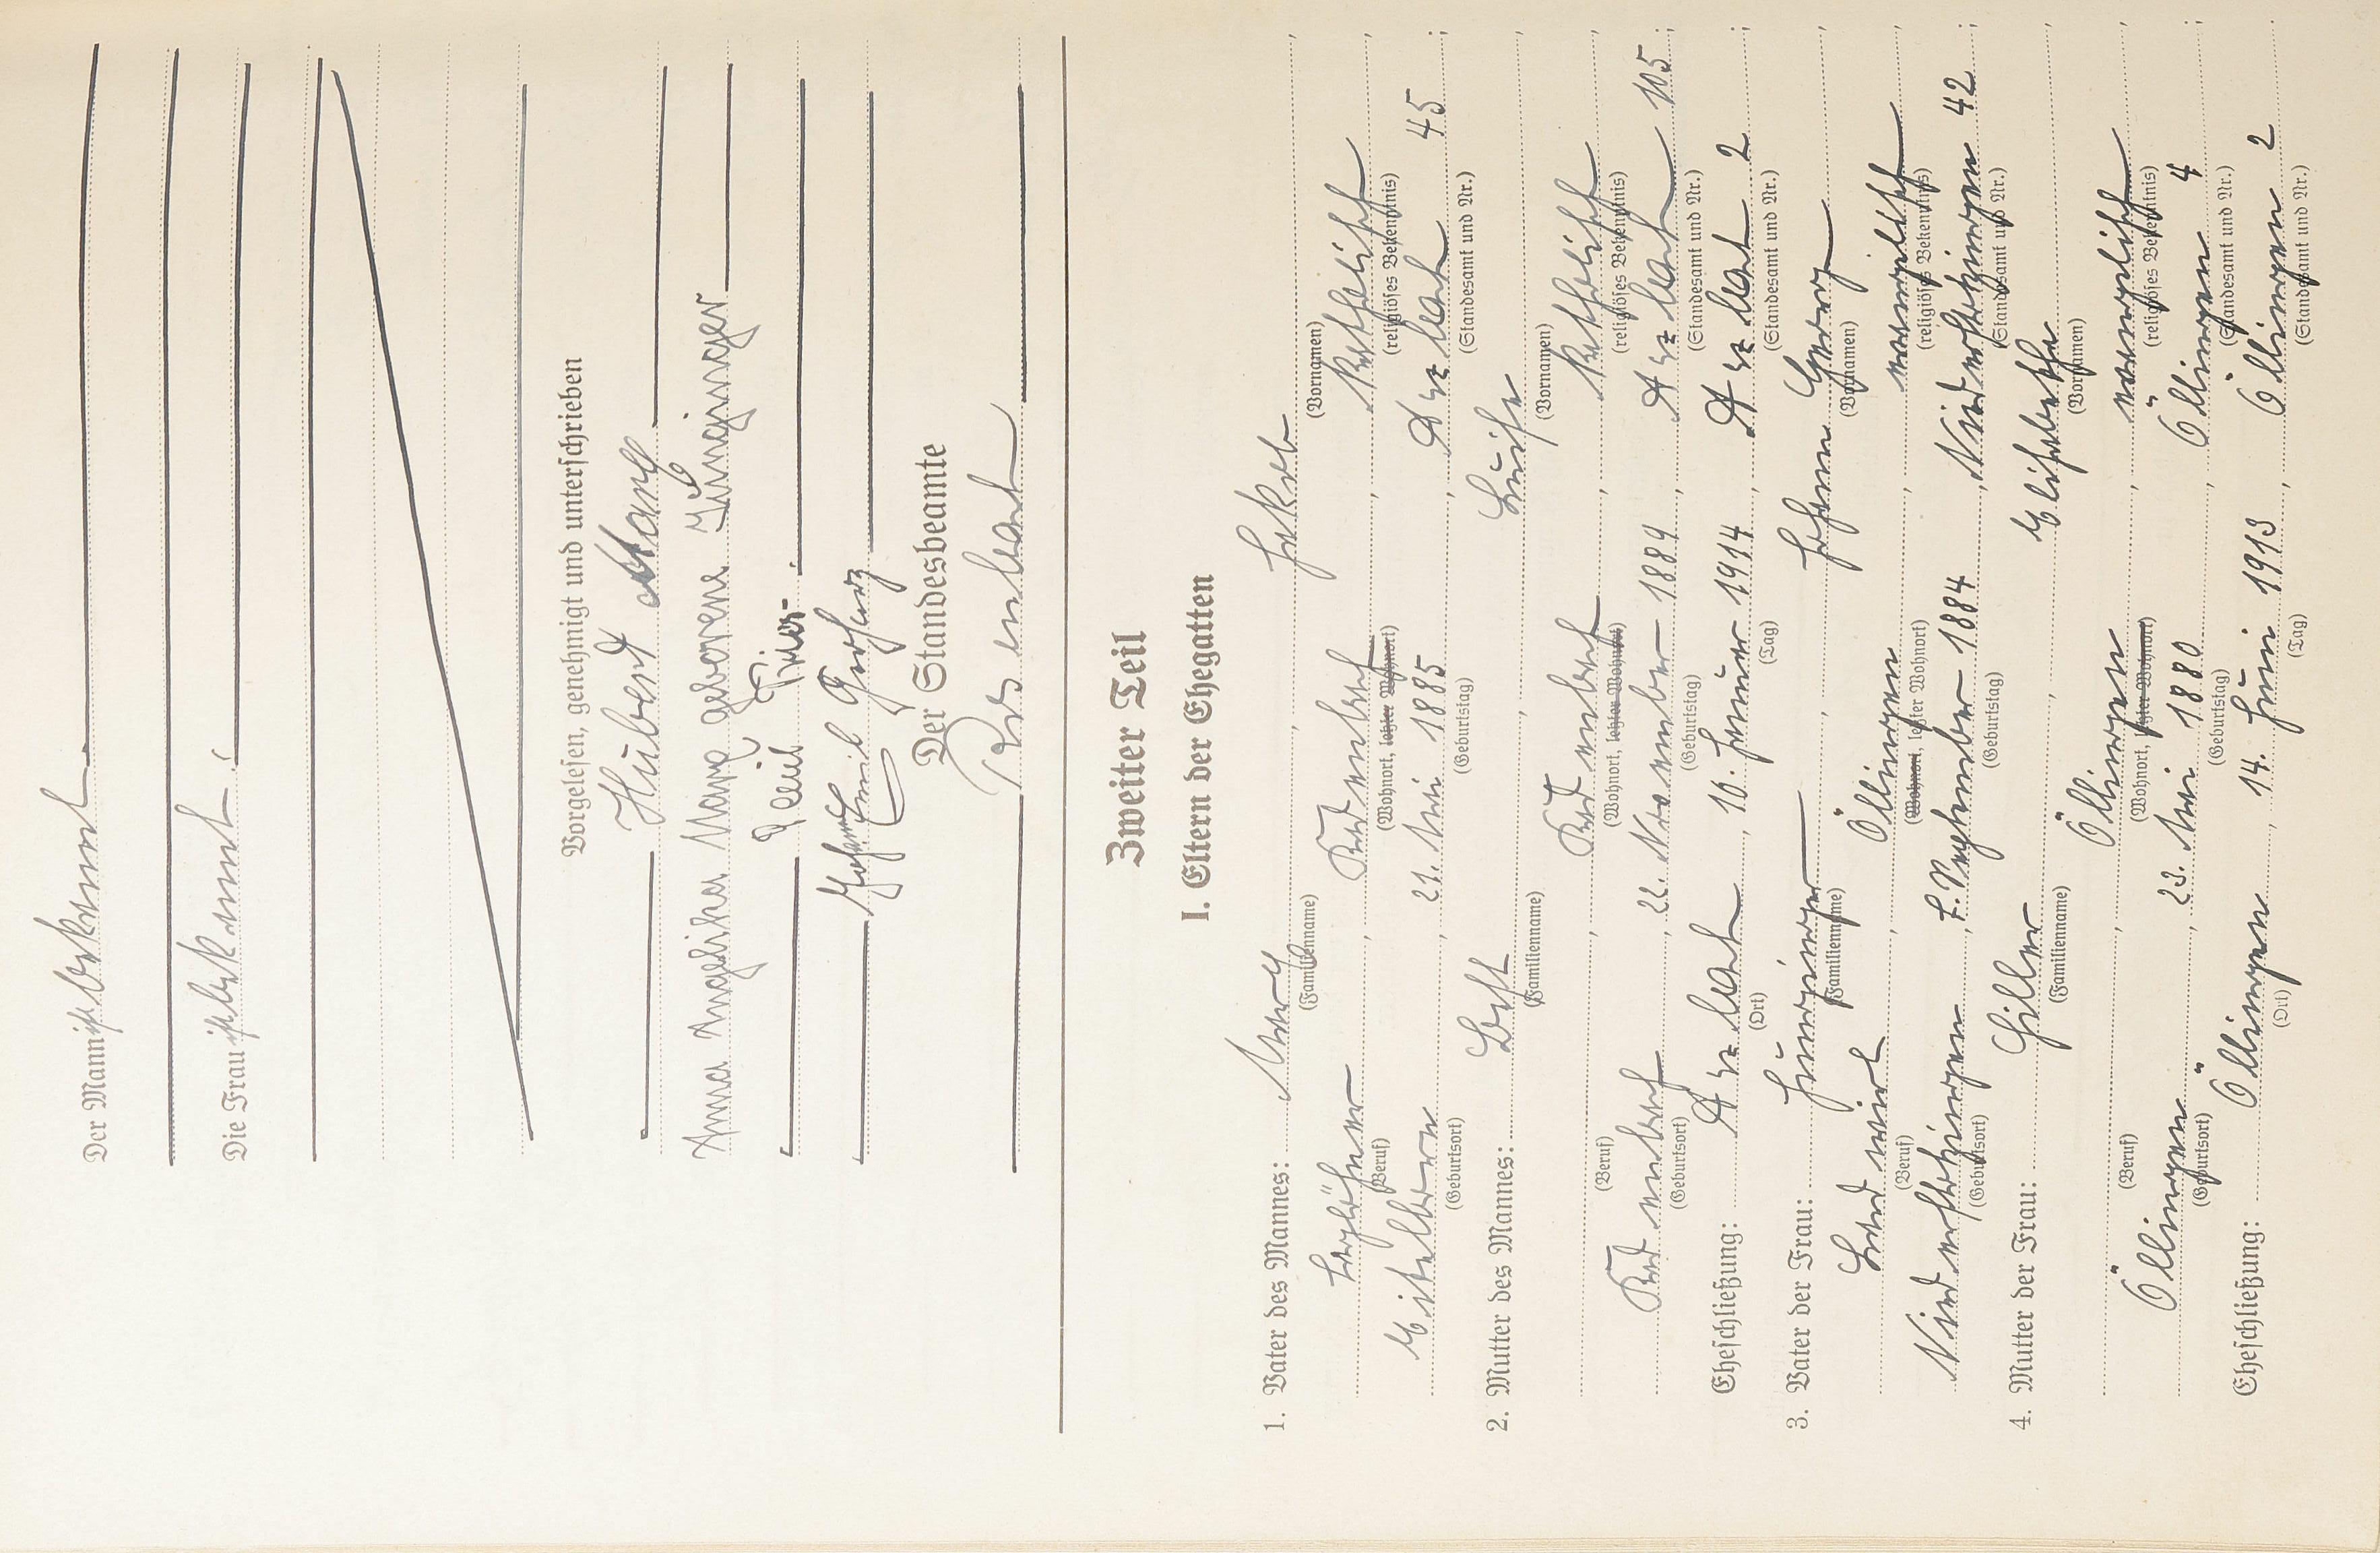 Der Mann ist bekannt
Die Frau ist bekannt.
Vorgelesen, genehmigt und unterschrieben
Hubert Marx
Anna Angelika Marx geborene Jünginger
Paul
Johann Emil
Der Standesbeamte
Zweiter Teil
I. Eltern der Ehegatten
1. Vater des Mannes: Marx, Jakob,
(Familienname) (Vornamen)
Taglöhner, katholisch,
(Beruf) (Wohnort, letzter Wohnort) (religiöses Bekenntnis)
Eitelborn, 21. Mai 1885, 45;
(Geburtsort) (Geburtstag) (Standesamt und Nr.)
2. Mutter des Mannes: Luise,
(Familienname) (Vornamen)
katholisch,
(Beruf) (Wohnort, letzter Wohnort) (religiöses Bekenntnis)
22. November 1889, 105;
(Geburtsort) (Geburtstag) (Standesamt und Nr.)
Eheschließung: 10. Januar 1914, 2;
(Ort) (Tag) (Standesamt und Nr.)
3. Vater der Frau: Jünginger, Johann Georg,
(Familienname) (Vornamen)
Landwirt, Öllingen, evangelisch,
(Beruf) (Wohnort, letzter Wohnort) (religiöses Bekenntnis)
Niederstotzingen, 7. September 1884, Niederstotzingen 42;
(Geburtsort) (Geburtstag) (Standesamt und Nr.)
4. Mutter der Frau: Hiller, Elisabetha,
(Familienname) (Vornamen)
Öllingen, evangelisch,
(Beruf) (Wohnort, letzter Wohnort) (religiöses Bekenntnis)
Öllingen, 23. Mai 1880, Öllingen 4;
(Geburtsort) (Geburtstag) (Standesamt und Nr.)
Eheschließung: Öllingen, 14. Juni 1913, Öllingen 2.
(Ort) (Tag) (Standesamt und Nr.)